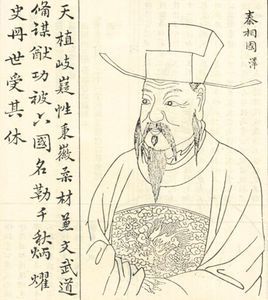 秦相國 澤
天植岐嶷性秉徽柔材兼文武道
俻謀猷功被六國名勒千秋炳燿
史冊世受其休